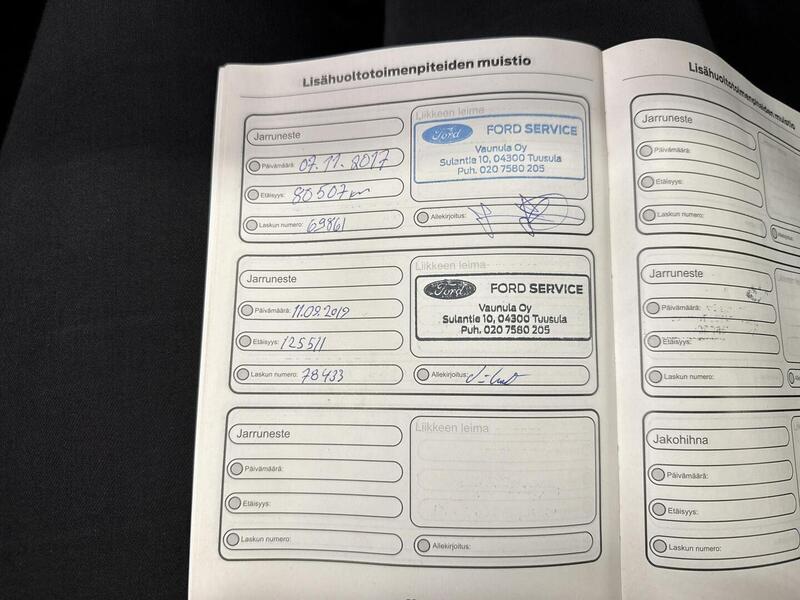 Lisähuoltotoimenpiteiden muistio
Jarruneste
Päivämäärä: 07.11.2017
Etäisyys: 80507 km
Laskun numero: 69861
Liikkeen leima
Ford FORD SERVICE
Vaunula Oy
Sulantie 10, 04300 Tuusula
Puh. 020 7580 205
Allekirjoitus:
Jarruneste
Päivämäärä: 11.09.2019
Etäisyys: 125511
Laskun numero: 78433
Liikkeen leima
Ford FORD SERVICE
Vaunula Oy
Sulantie 10, 04300 Tuusula
Puh. 020 7580 205
Allekirjoitus:
Jarruneste
Päivämäärä:
Etäisyys:
Laskun numero:
Liikkeen leima
Allekirjoitus:
Lisähuoltotoimenpiteiden muistio
Jarruneste
Päivämäärä:
Etäisyys:
Laskun numero:
Jarruneste
Päivämäärä:
Etäisyys:
Laskun numero:
Jakohihna
Päivämäärä:
Etäisyys:
Laskun numero: